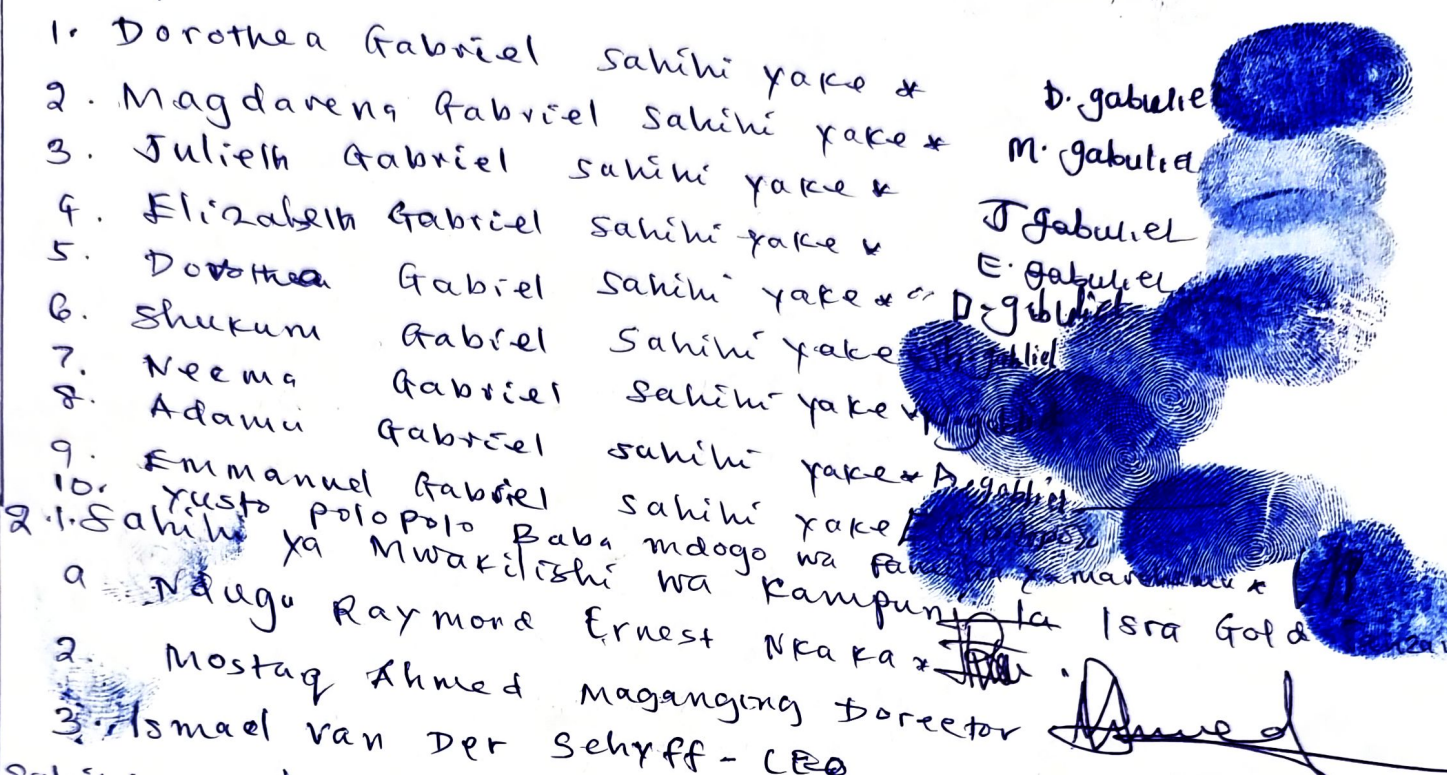 1. Dorothea Gabriel sahihi yake * D. gabuliel
2. Magdarena Gabriel sahihi yake * M. gabuliel
3. Julieth Gabriel sahihi yake * J gabuliel
4. Elizabeth Gabriel sahihi yake * E. gabuliel
5. Dorothea Gabiel sahihi yake * D. gabuliel
6. Shukuru Gabiel sahihi yake
7. Neema Gabriel sahihi yake
8. Adamu Gabriel sahihi yake * A. gabliel
9. Emmanuel Gabriel sahihi yake
10. Yusto polopolo Baba mdogo wa familia ya marehemu *
2.1. Sahihi ya Mwakilishi wa Kampuni ya Isra Gold Tanzan
a Ndugu Raymond Ernest Nkaka *
2. Mostaq Ahmed Maganging Doreetor Ahmed
3. Ismael van Der Sehyff - CEO